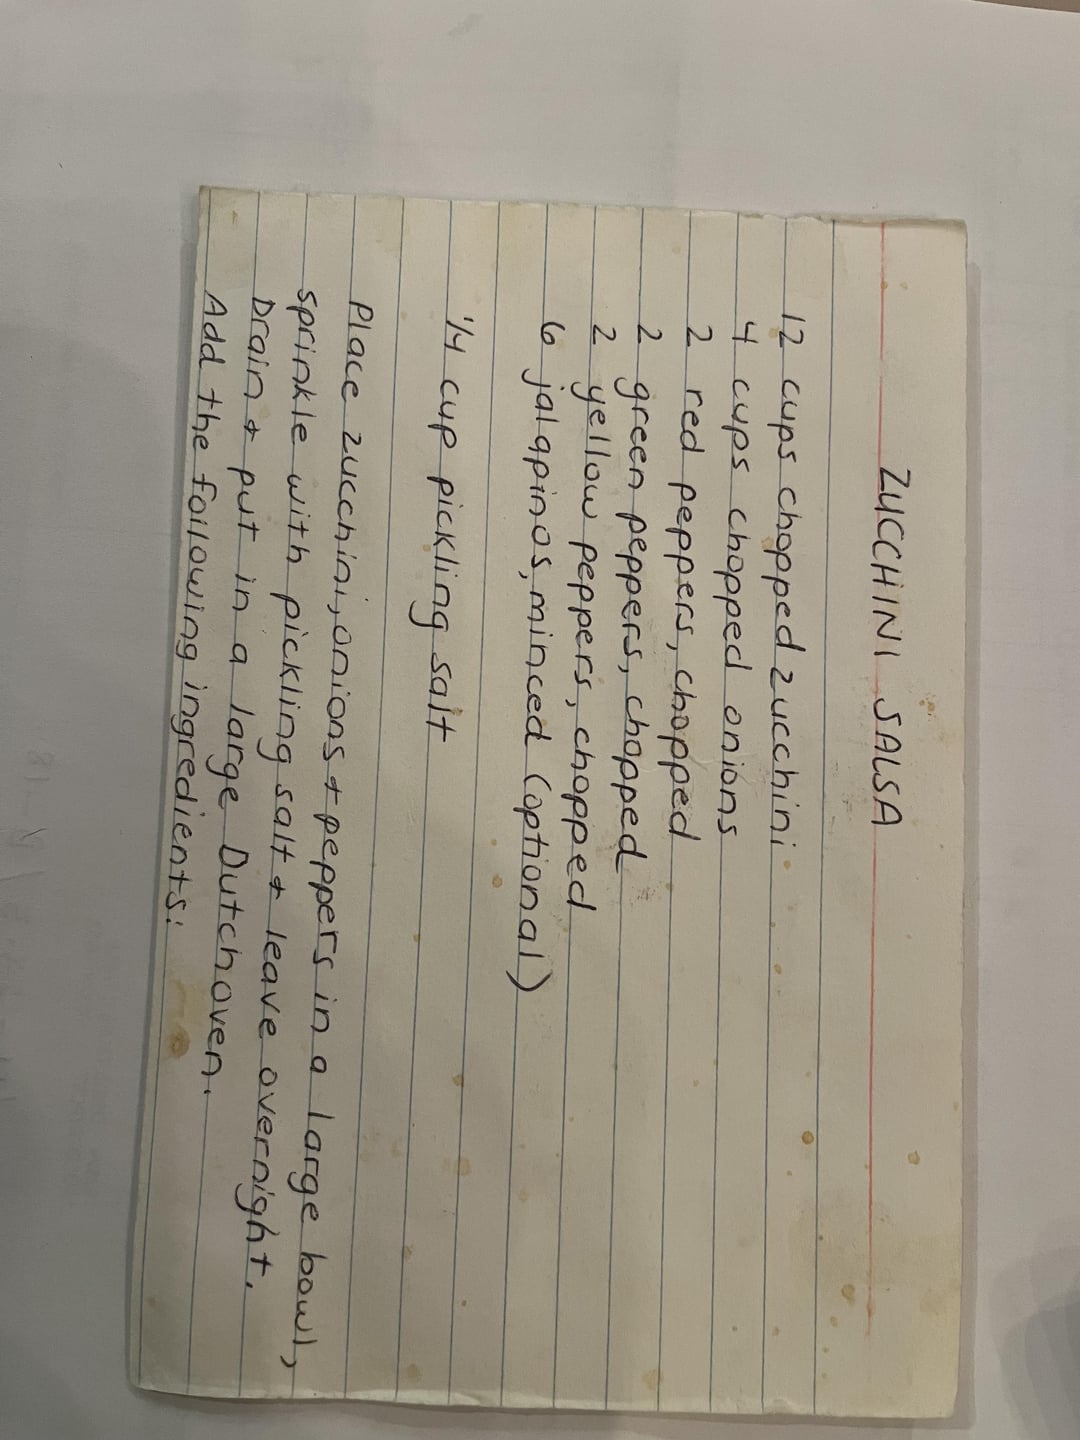 ZUCCHINI SALSA
12 cups chopped zucchini
4 cups chopped onions
2 red peppers, chopped
2 green peppers, chopped
2 yellow peppers, chopped
6 jalapinos, minced (optional)
1/4 cup pickling salt
Place zucchini, onions + peppers in a large bowl,
sprinkle with pickling salt + leave overnight.
Drain + put in a large Dutch oven.
Add the following ingredients: